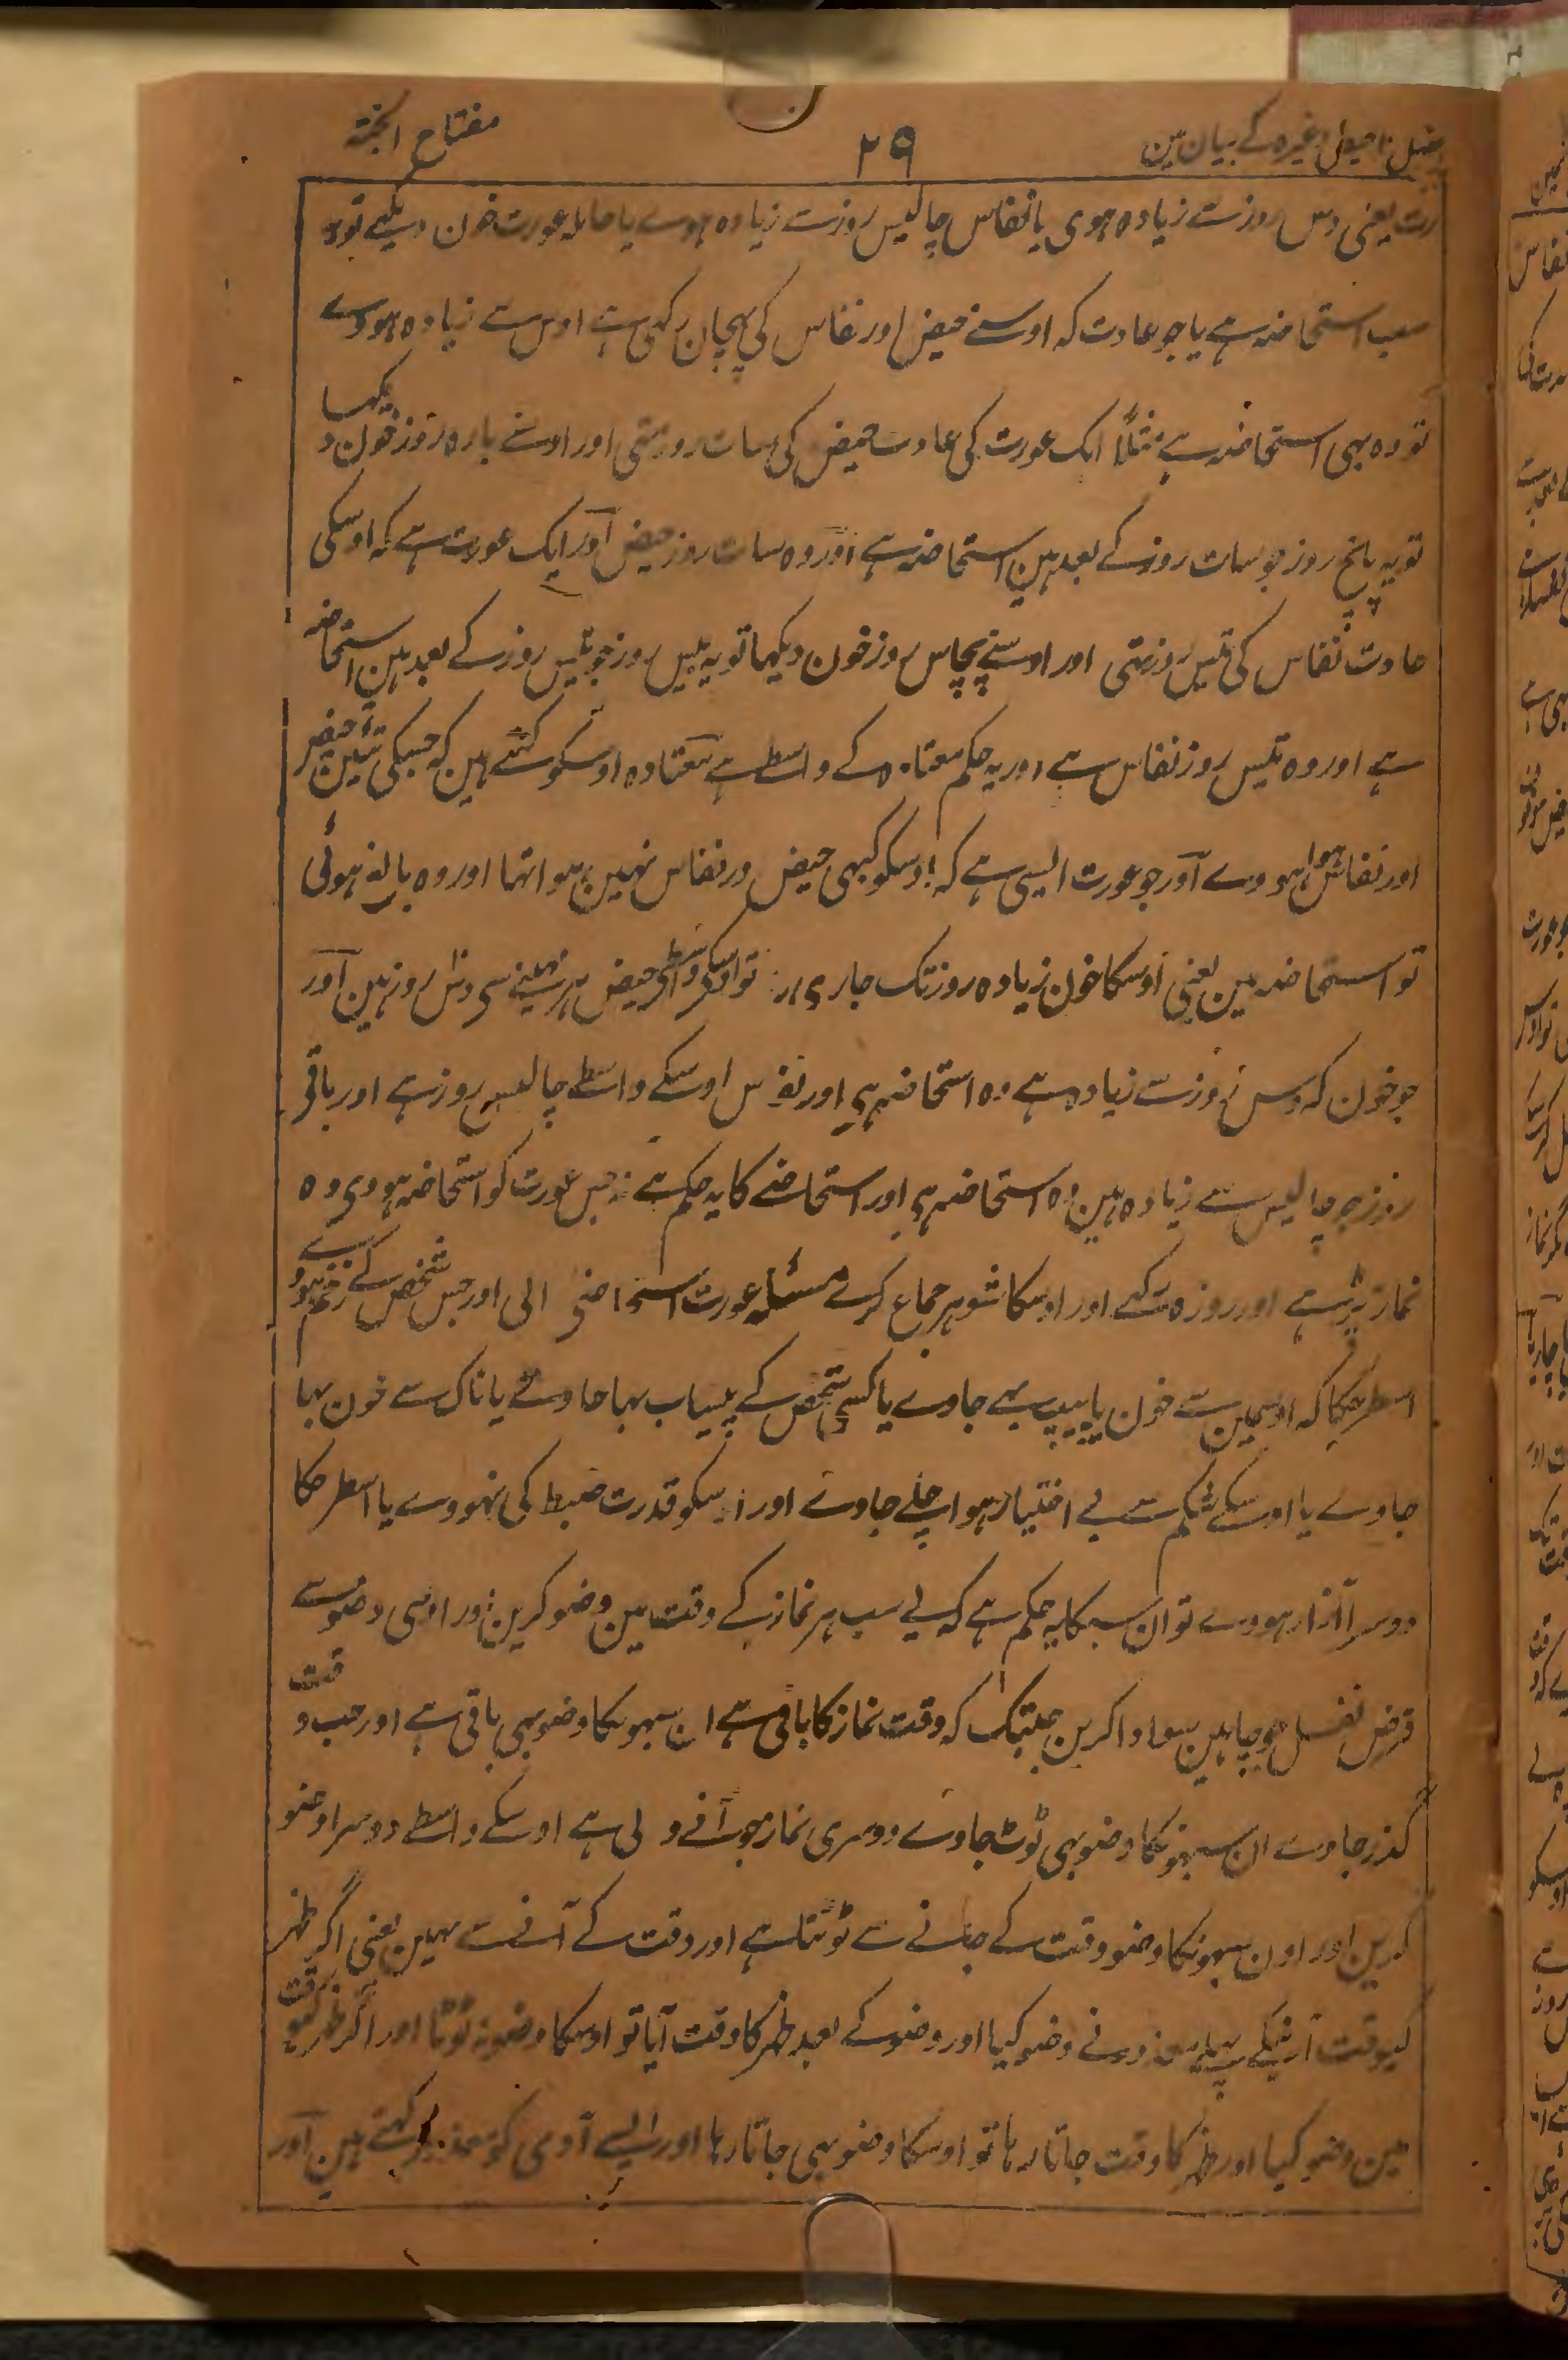 فصل ۱۰ حیض وغیرہ کے بیان مین
۲۹
مفتاح الجنۃ
رت یعنی دس روزسے زیادہ ہوی یا نفاس چالیس روزسے زیادہ ہوے یا حاملہ عورت خون دیکہے تو یہ
سب استحاضہ ہے یا جو عادت کہ اوسنے حیض اور نفاس کی پہچان رکہی ہے اوس سے زیادہ ہووے
تو وہ بہی استحاضہ ہے مثلاً ایک عورت کی عادت حیض کی سات روز تہی اور اوسنے بارہ روز خون دیکہا
تو یہ پانچ روز جو سات روزکے بعد ہین استحاضہ ہے اور وہ سات روز حیض آور ایک عورت ہے کہ اوسکی
عادت نفاس کی تیس روز تہی اور اوسنے پچاس روز خون دیکہا تو یہ بیس روز جو تیس روزکے بعد ہین استحاضہ
ہے اور وہ تیس روز نفاس ہے اور یہ حکم معتادہ کے واسطے ہے معتادہ اوسکو کہتے ہین کہ جسکی تئین حیض
اور نفاس ہوا ہووے آور جو عورت ایسی ہے کہ اوسکو کبہی حیض اور نفاس نہین ہوا تہا اور وہ بالغہ ہوئی
تو استحاضہ مین یعنی اوسکا خون زیادہ روز تک جاری رہا تو اوسکے واسطے حیض ہر مہینے سی دش روز ہین آور
جو خون کہ دس روزسے زیادہ ہے وہ استحاضہ ہی اور نفاس اوسکے واسطے چالیس روز ہے اور باقی
روز جو چالیس سے زیادہ ہین وہ استحاضہ ہی اور استحاضے کا یہ حکم ہے کہ جس عورت کو استحاضہ ہووی وہ
نماز پڑہے اور روزہ رکہے اور اوسکا شوہر جماع کرے مسئلہ عورت استحاضے والی اور جس شخص کے زخم ہووے
اسطرحکا کہ اوسمین سے خون یا پیپ بہے جاوے یا کسی شخص کے پیساب بہا جاوے یا ناک سے خون بہا
جاوے یا اوسکے شکم سے بے اختیار ہوا چلے جاوے اور اوسکو قدرت ضبط کی نہووے یا اسطرحکا
دوسرا آزار ہووے تو ان سبکا یہ حکم ہے کہ یے سب ہر نماز کے وقت مین وضو کرین اور اوسی وضوسے
فرض نفل جو چاہین سو ادا کرین جبتک کہ وقت نماز کا باقی ہے ان سبہونکا وضو بہی باقی ہے اور جب وقت
گذر جاوے ان سبہونکا وضو بہی ٹوٹ جاوے دوسری نماز جو آنے والی ہے اوسکے واسطے دوسرا وضو
کرین اور اون سبہونکا وضو وقت کے جانے سے ٹوٹتا ہے اور وقت کے آنے سے نہین یعنی اگر ظہر
کیوقت آنیکے پہلے معذور نے وضو کیا اور وضو کے بعد ظہر کا وقت آیا تو اوسکا وضو نہ ٹوٹا اور اگر ظہر کیوقت
مین وضو کیا اور ظہر کا وقت جاتا رہا تو اوسکا وضو بہی جاتا رہا اور ایسے آدمی کو معذور کہتے ہین آور